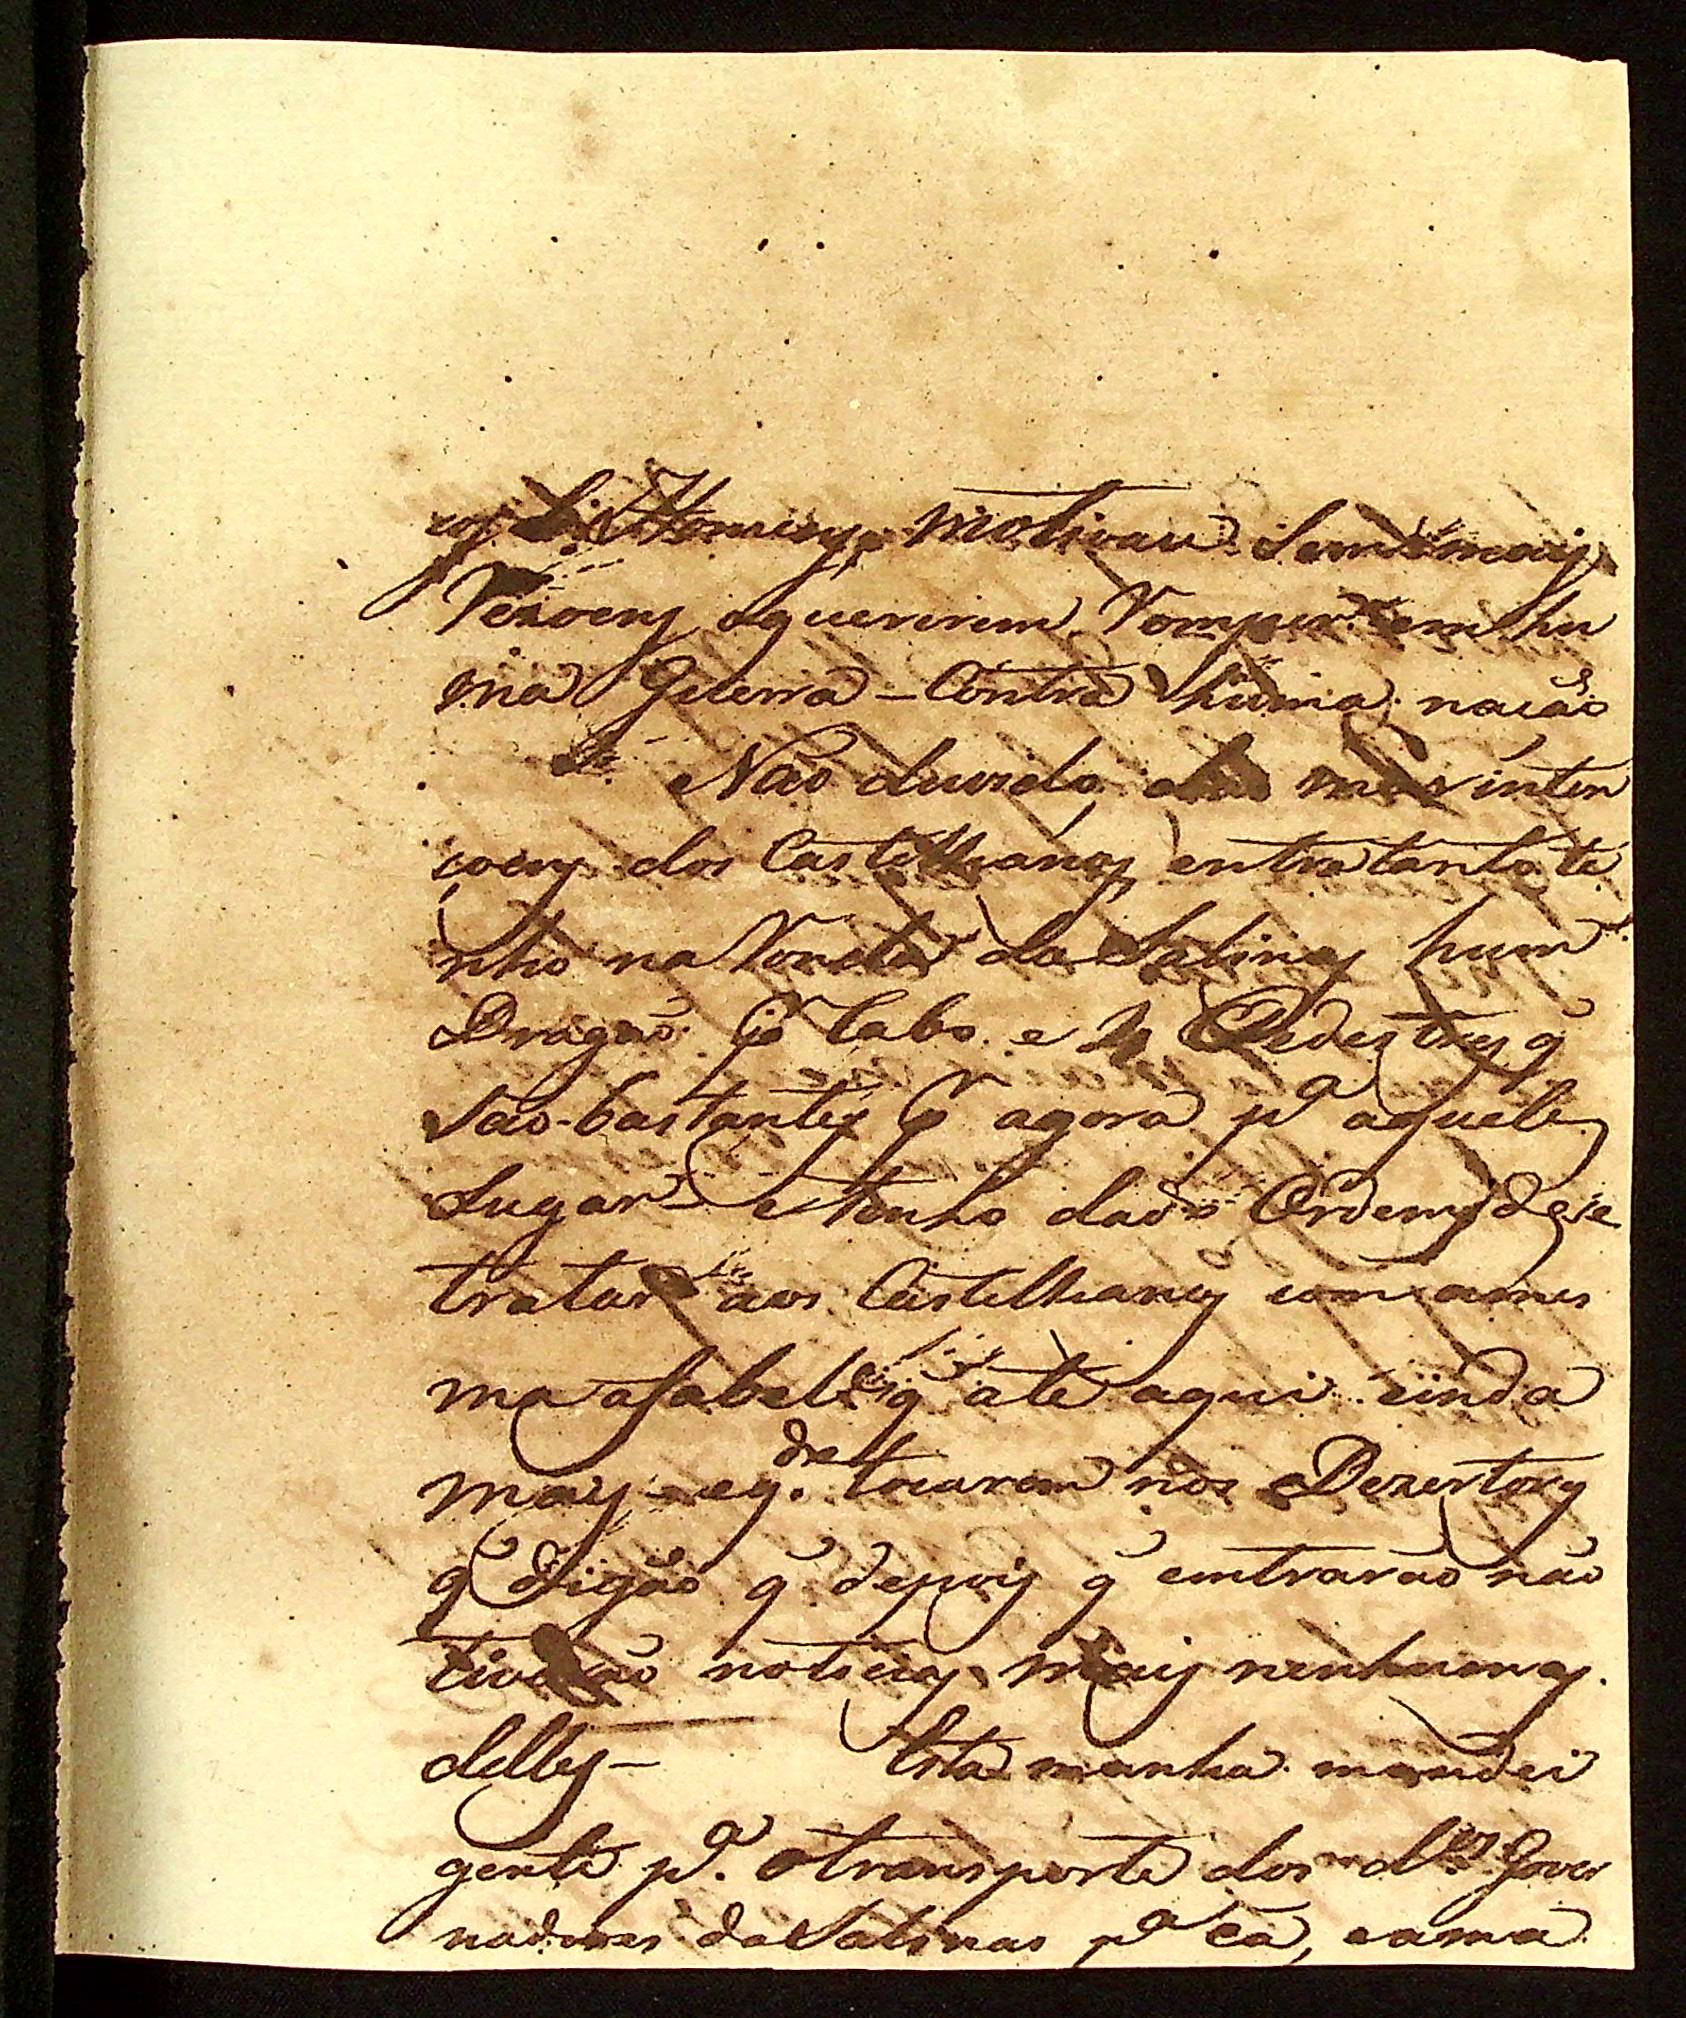 Homens, motivau sem mais
Rezoens aquererem Romper em hu
ma Guerra - Contra huma nacão
Não duvido mas inten
coens dos Castelhanos, entretanto te
nho na Ronda da Salinas hum
Dragão p.r Cabo e 4 Pedestres q̃
são bastantes p.r agora p.a aquele
Lugar - e tenho dado Ordems de se
tratar aos Castelhanos com a mes
ma afabelid.e q̃ até aqui einda
mais eq.do tocarem nos Dezertores
q̃ digão q̃ depois q̃ emtrarão não
tiverão noticias mais nenhumas
delles - Esta manha mandei
gente p.a o transporte dos d.tos Gover
nadores da Salinas p.a cá, e a ma